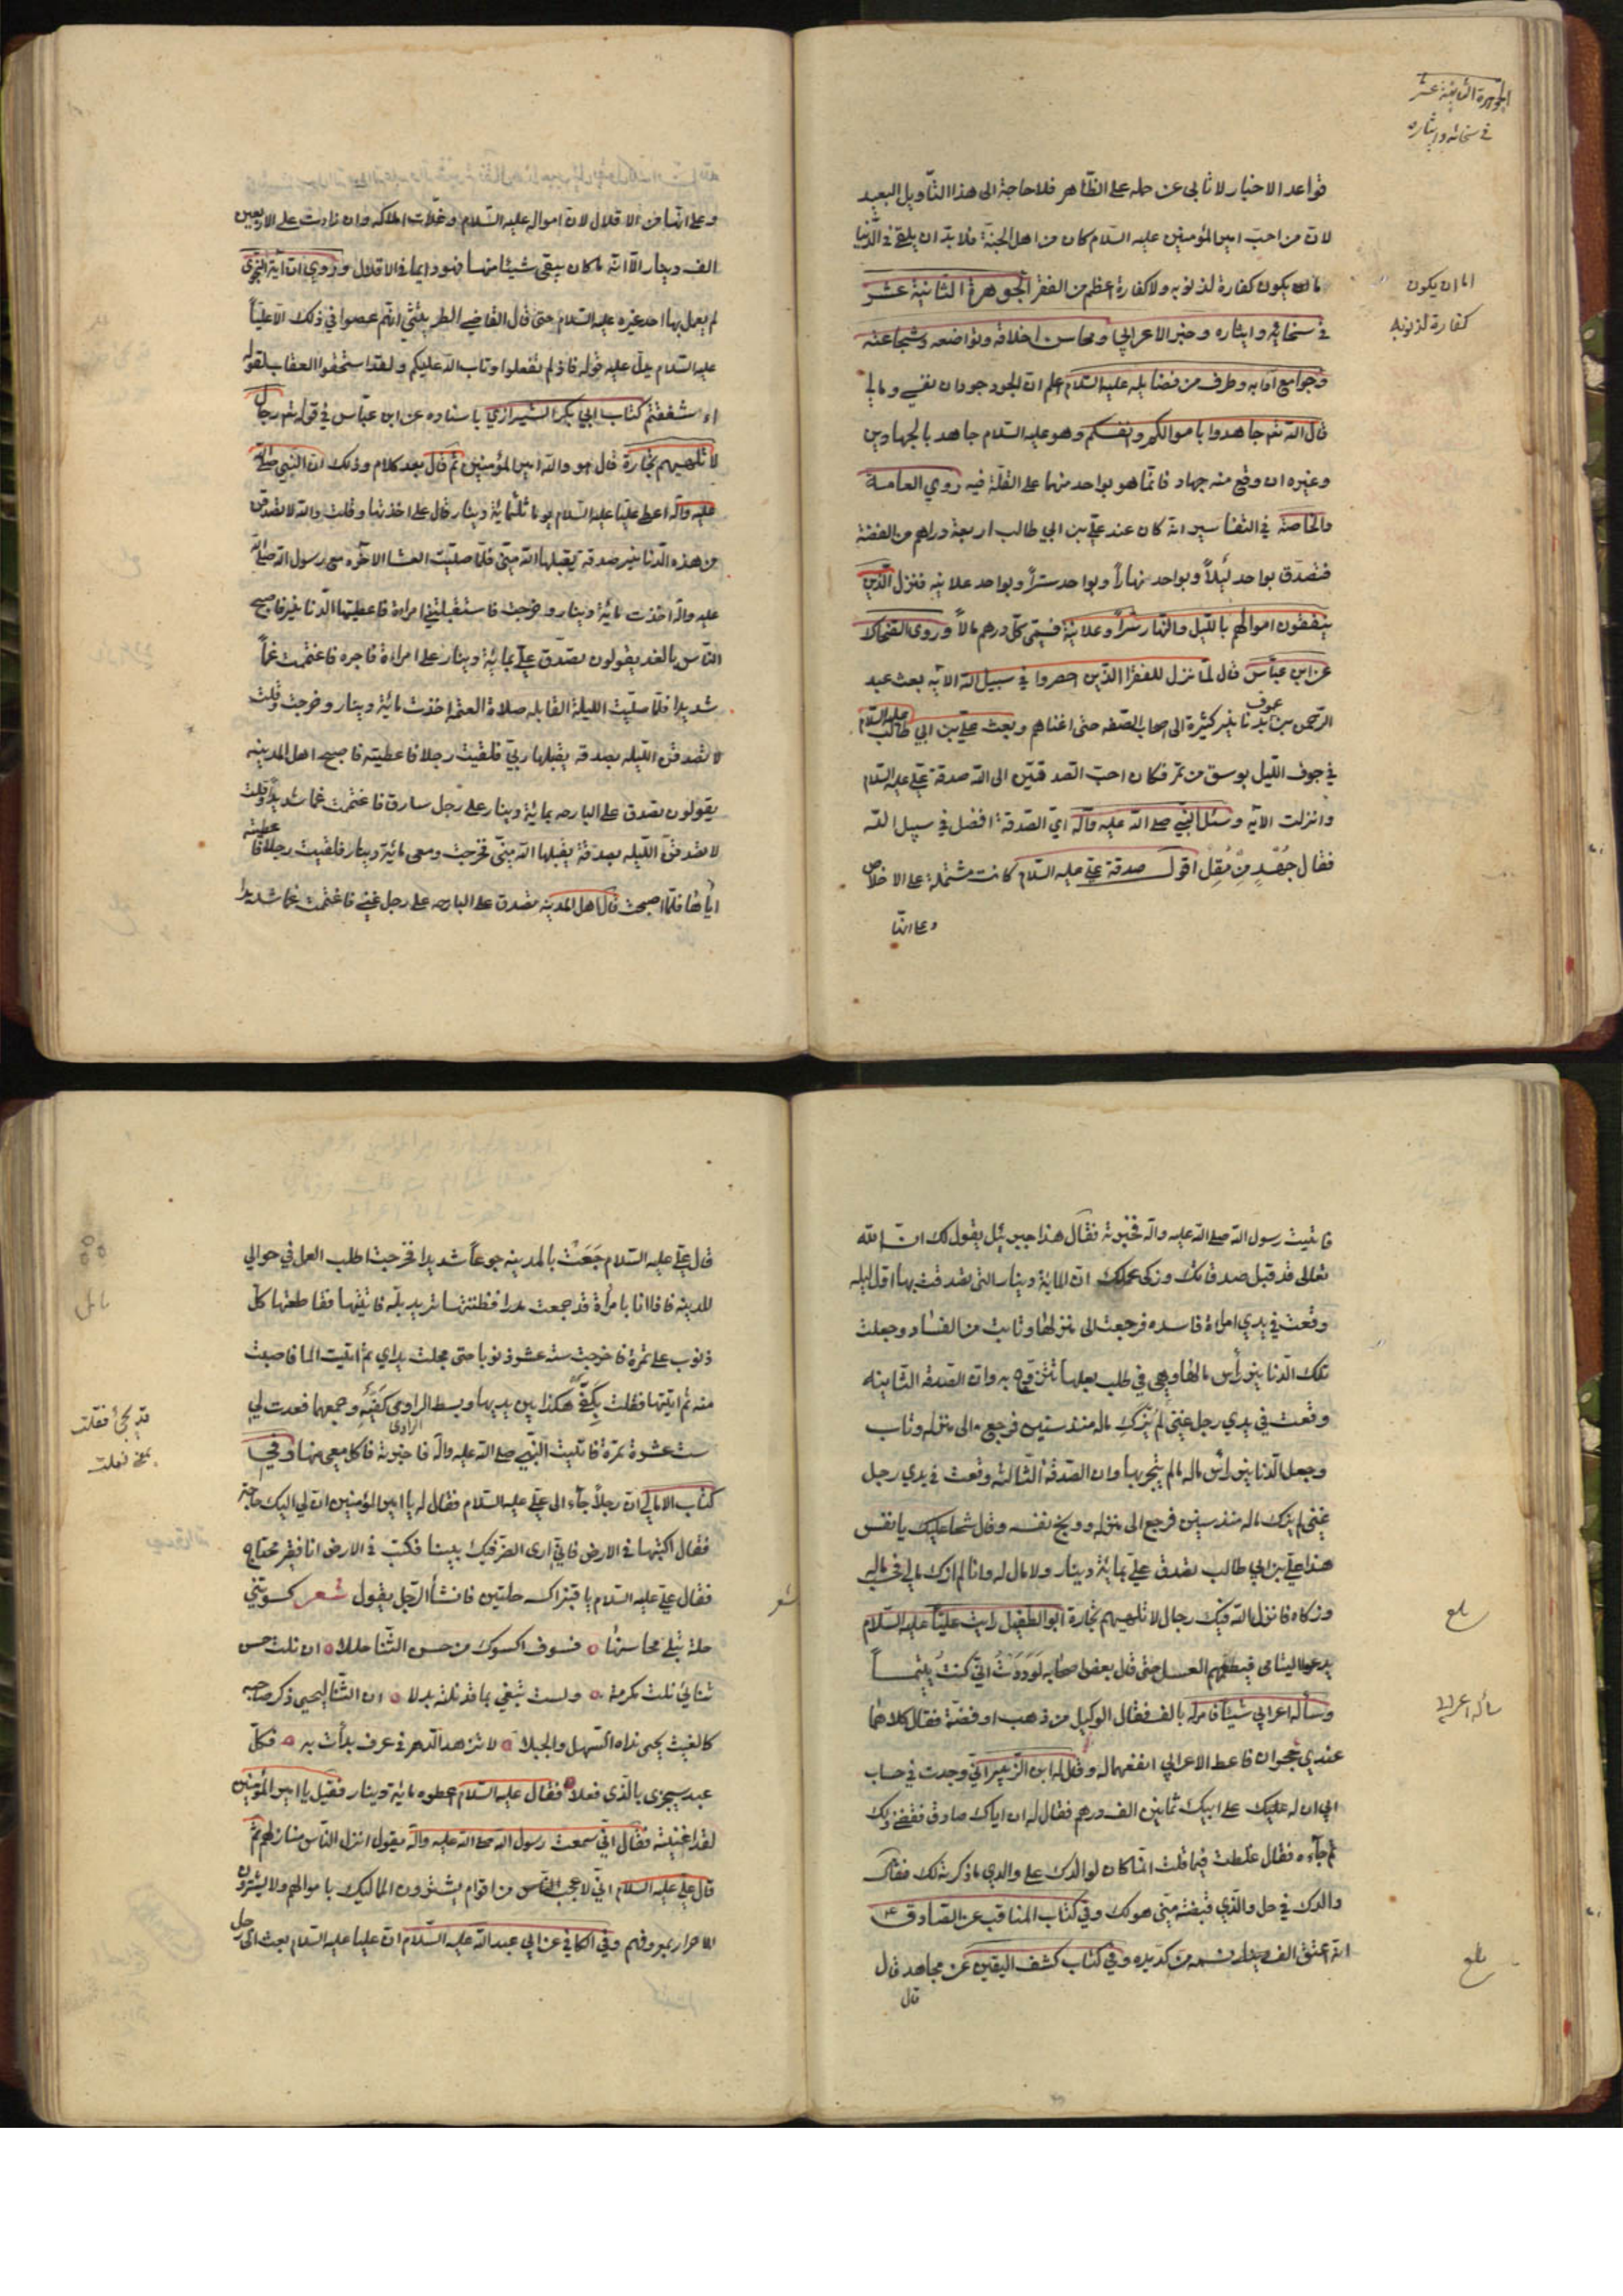 الجوهرة الثانية عشر
في سخائه وايثاره
قواعد الاخبار لا تابى عن حمله على الظاهر فلا حاجة الى هذا التأويل البعيد
لان من احب امير المؤمنين عليه السلام كان من اهل الجنة فلا بد ان يلقى في الدنيا
ما يكون كفارة لذنوبه ولا كفارة اعظم من الفقر الجوهرة الثانية عشر
اما ان يكون
كفارة لذنوبه
في سخائه وايثاره وخبر الاعرابي ومحاسن اخلاقه وتواضعه وشجاعته
وجوامع ادابه وطرف من فضايله عليه السلام اعلم ان الجود جودان نفسي ومالي
قال الله تع جاهدوا باموالكم وانفسكم وهو عليه السلام جاهد بالجهادين
وغيره ان وقع منه جهاد فانما هو بواحد منهما على القلة فيه روي العامة
والخاصة في التفاسير انه كان عند علي بن ابي طالب اربعة دراهم من الفضة
فتصدق بواحد ليلاً وبواحد نهاراً وبواحد ستراً وبواحد علانيه فنزل الذين
ينفقون اموالهم بالليل والنهار سراً وعلانية فسمى كل درهم مالاً وروى الضحاك
عن ابن عباس قال لما نزل للفقرا الذين احصروا في سبيل الله الايه بعث عبد
الرحمن بن عوف بدنانير كثيرة الى اصحاب الصفه حتى اغناهم وبعث علي بن ابي طالب عليه السلام
في جوف الليل بوسق من تمر فكان احب الصدقتين الى الله صدقة علي عليه السلام
وانزلت الآيه وسئل النبي صلى الله عليه وآله اي الصدقة افضل في سبيل الله
فقال جُهْدٍ مِنْ مُقِل اقول صدقة علي عليه السلام كانت مشتملة على الاخلاص
وعلى انها
وعلى انها من الاقلال لان امواله عليه السلام وغلات املاكه وان زادت على الاربعين
الف دينار الا انه ما كان يبقى شيئا منها فهو دايما في الاقلال وروي ان آية النجوى
لم يعمل بها احد غيره عليه السلام حتى قال القاضي الطريثيثي انهم عصوا في ذلك الا علياً
عليه السلام يدل عليه قوله فاذ لم تفعلوا وتاب الله عليكم ولقد استحقوا العقاب لقوله
ءاشفقتم كتاب ابي بكر الشيرازي باسناده عن ابن عباس في قوله تع رجال
لا تلهيهم تجارة قال هو والله امير المؤمنين ثم قال بعد كلام وذلك ان النبي صلى الله
عليه وآله اعطى عليا عليه السلام يوما ثلثمائة دينار قال علي اخذتها وقلت والله لا تصدقن
من هذه الدنانير صدقة يقبلها الله مني فلما صليت العشا الآخره مع رسول الله صلى الله
عليه وآله اخذت مائة دينار وخرجت فاستقبلتني امراة فاعطيتها الدنانير فاصبح
الناس بالغد يقولون تصدق علي بمائة دينار على امراة فاجره فاغتممت غماً
شديدا فلما صليت الليلة القابله صلاة العتمة اخذت مائة دينار وخرجت وقلت
لا تصدقن الليله بصدقه يقبلها ربي فلقيت رجلا فاعطيته فاصبح اهل المدينه
يقولون تصدق علي البارحه بمائة دينار على رجل سارق فاغتممت غما شديدا وقلت
لا تصدقن الليله بصدقة يقبلها الله مني فخرجت ومعي مائة دينار فلقيت رجلا فاعطيته
اياها فلما اصبحت قال اهل المدينه تصدق علي البارحه على رجل غني فاغتممت غما شديدا
فاتيت رسول الله صلى الله عليه وآله فخبرته فقال هذا جبرئيل يقول لك ان الله
تعالى قد قبل صدقاتك وزكى عملك ان المائة دينار التي تصدقت بها اول ليله
وقعت في يدي امراة فاسده فرجعت الى منزلها وتابت من الفساد وجعلت
تلك الدنانير رأس مالها وهي في طلب بعلها تتزوج به وان الصدقة الثانيه
وقعت في يدي رجل غني لم يترك ماله منذ سنين فرجع الى منزله وتاب
وجعل الدنانير رأس ماله مالم يتجر بها وان الصدقة الثالثة وقعت في يدي رجل
غني لم يزك ماله منذ سنين فرجع الى منزله ووبخ نفسه وقال شحا عليك يا نفس
هذا علي بن ابي طالب تصدق علي بمائة دينار ولا مال له وانا لم ازك مالي فحسب ماله
وزكاه فانزل الله فيك رجال لا تلهيهم تجارة ابو الطفيل رايت علياً عليه السلام
بلغ
يدعو اليتامى فيطعمهم العسل حتى قال بعض اصحابه لَوَدَدْتُ اني كنتُ يتيماً
وسأله اعرابي شيئا فامر له بالف فقال الوكيل من ذهب او فضة فقال كلاهما
سأله اعرابي
عندي حجران فاعط الاعرابي انفعهما له وقال له ابن الزبير اني وجدت في حساب
ابي ان له عليك على ابيك ثمانين الف درهم فقال له ان اباك صادق فقضى ذلك
ثم جاءه فقال غلطت فيما قلت انما كان لوالدك على والدي ما ذكرته لك فقال
والدك في حل والذي قبضته مني هو لك وفي كتاب المناقب عن الصادق ع
انه اعتق الف نسمه من كد يده وفي كتاب كشف اليقين عن مجاهد قال
بلغ
قال
قال علي عليه السلام جَعَتُ بالمدينه جوعاً شديدا فخرجت اطلب العمل في حوالي
المدينه فاذا انا بامراة قد جمعت مدرا فظننتها تريد بله فاتيتها فقاطعتها كل
ذنوب على تمرة فاخرجت سته عشر ذنوبا حتى مجلت يداي ثم اتيت الما فاصبت
منه ثم اتيتها فقلت بِكَفّي هكذا بين يديها وبسط الراوي كَفّيْهِ وجمعهما فعدت لي
الراوي
ست عشرة تمرة فاتيت النبي صلى الله عليه وآله فاخبرته فاكل معي منها وفي
كتاب الامالي ان رجلاً جآء الى علي عليه السلام فقال له يا امير المؤمنين ان لي اليك حاجة
فقال اكتبها في الارض فاني ارى الضر فيك بينا فكتب في الارض انا فقير محتاج
فقال علي عليه السلام يا قنبر اكسه حلتين فانشأ الرجل يقول شعر كسوتني
شعر
حلة تبلى محاسنها فسوف اكسوك من حسن الثنا حللا ان نلت حسن
ثنائي نلت مكرمة ولست تبغي بما قد نلته بدلا ان الثنا ليحيى ذكر صاحبه
كالغيث يحيى نداه السهل والجبلا لا تزهد الدهر في عرف بدأت به فكل
عبد سيجزى بالذي فعلا فقال عليه السلام اعطوه مائة دينار فقيل يا امير المؤمنين
لقد اغنيته فقال اني سمعت رسول الله صلى الله عليه وآله يقول انزل الناس منازلهم ثم
قال علي عليه السلام اني لاعجب من اقوام يشترون المماليك باموالهم ولا يشترون
الاحرار بمعروفهم وفي الكافي عن ابي عبد الله عليه السلام ان عليا عليه السلام بعث الى رجل